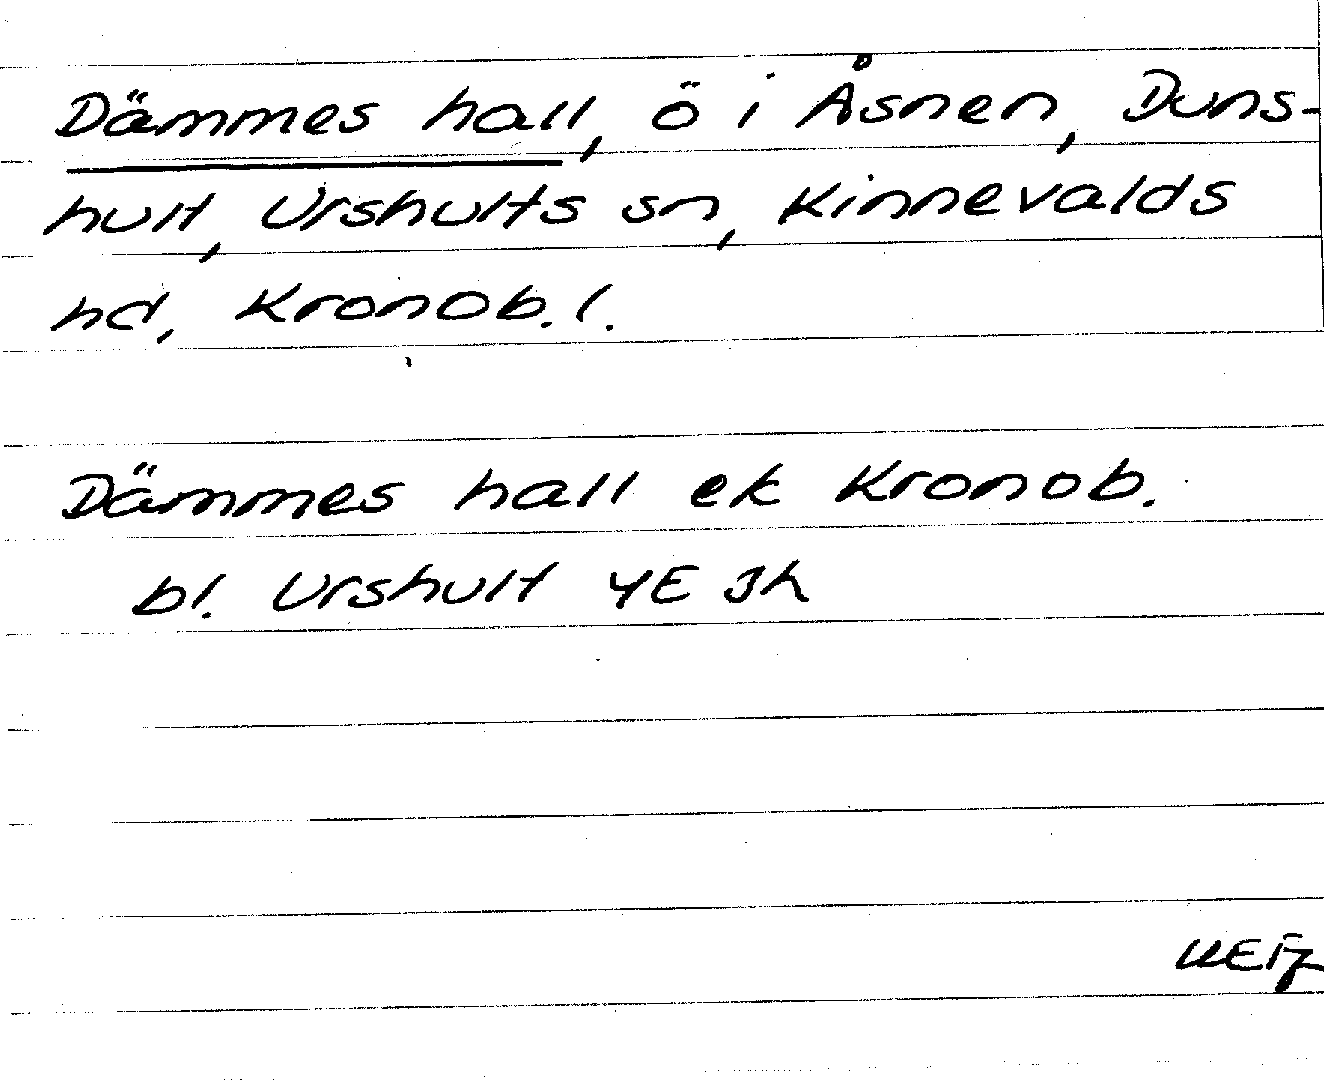 Dämmes hall, ö i Åsnen, Duns-
hult, Urshults sn, Kinnevalds
hd, Kronob. l.
Dämmes hall ek Kronob.
bl. Urshult 4E 3h